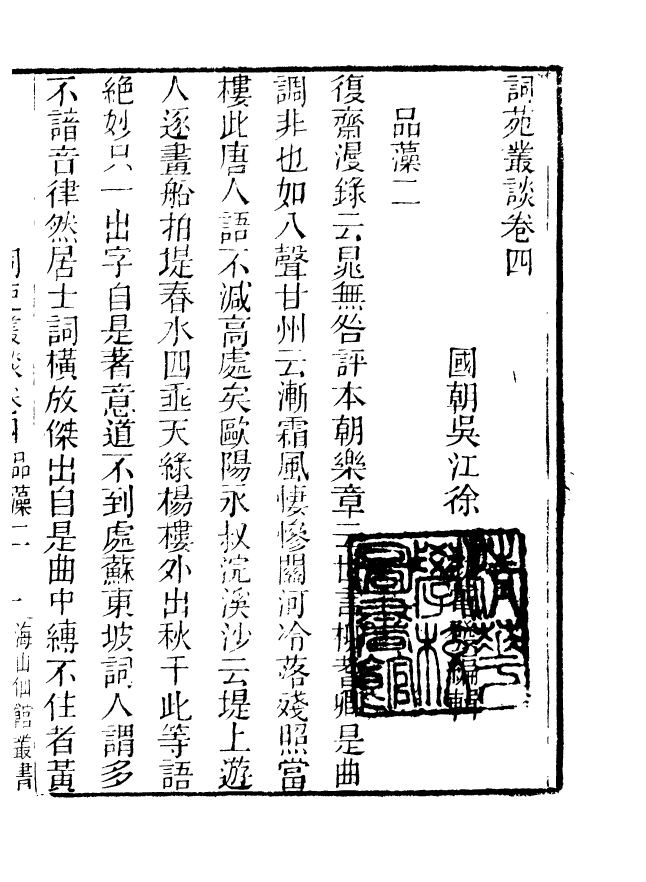 詞苑叢談卷四
國朝吳江徐 編輯
品藻二
復齋漫錄云晁無咎評本朝樂章云世言柳耆卿是曲
調非也如八聲甘州云漸霜風悽慘關河冷落殘照當
樓此唐人語不減高處矣歐陽永叔浣溪沙云堤上遊
人逐畫船拍堤春水四垂天綠楊樓外出秋千此等語
絕妙只一出字自是著意道不到處蘇東坡詞人謂多
不諳音律然居士詞橫放傑出自是曲中縛不住者黃
詞苑叢談卷四 品藻二 一 海山仙館叢書